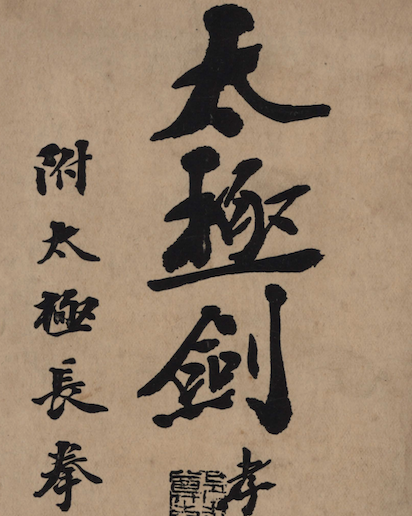 太極劍
孝
附太極長拳